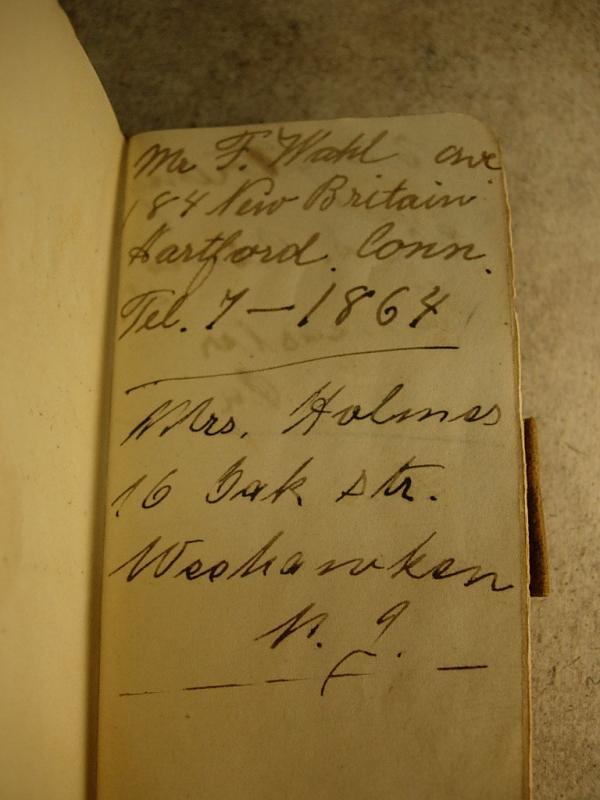 Mr F. Wahl ave
184 New Britain
Hartford. Conn.
Tel. 7—1864
Mrs. Holmes
16 Oak str.
Weehawken
N. J.